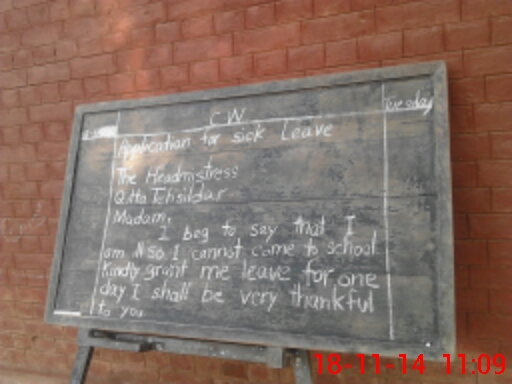 CW
Tuesday
Application for sick Leave
The Headmistress
Madam,
I beg to say that I
am so I cannot come to school
Kindly grant me leave for one
day I shall be very thankful
to you
18-11-14 11:09